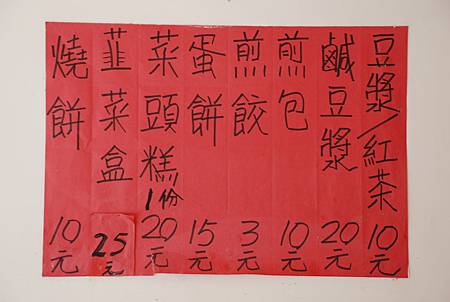 豆漿/紅茶 10元
鹹豆漿 20元
煎包 10元
煎餃 3元
蛋餅 15元
菜頭糕 1份 20元
韭菜盒 25元
燒餅 10元